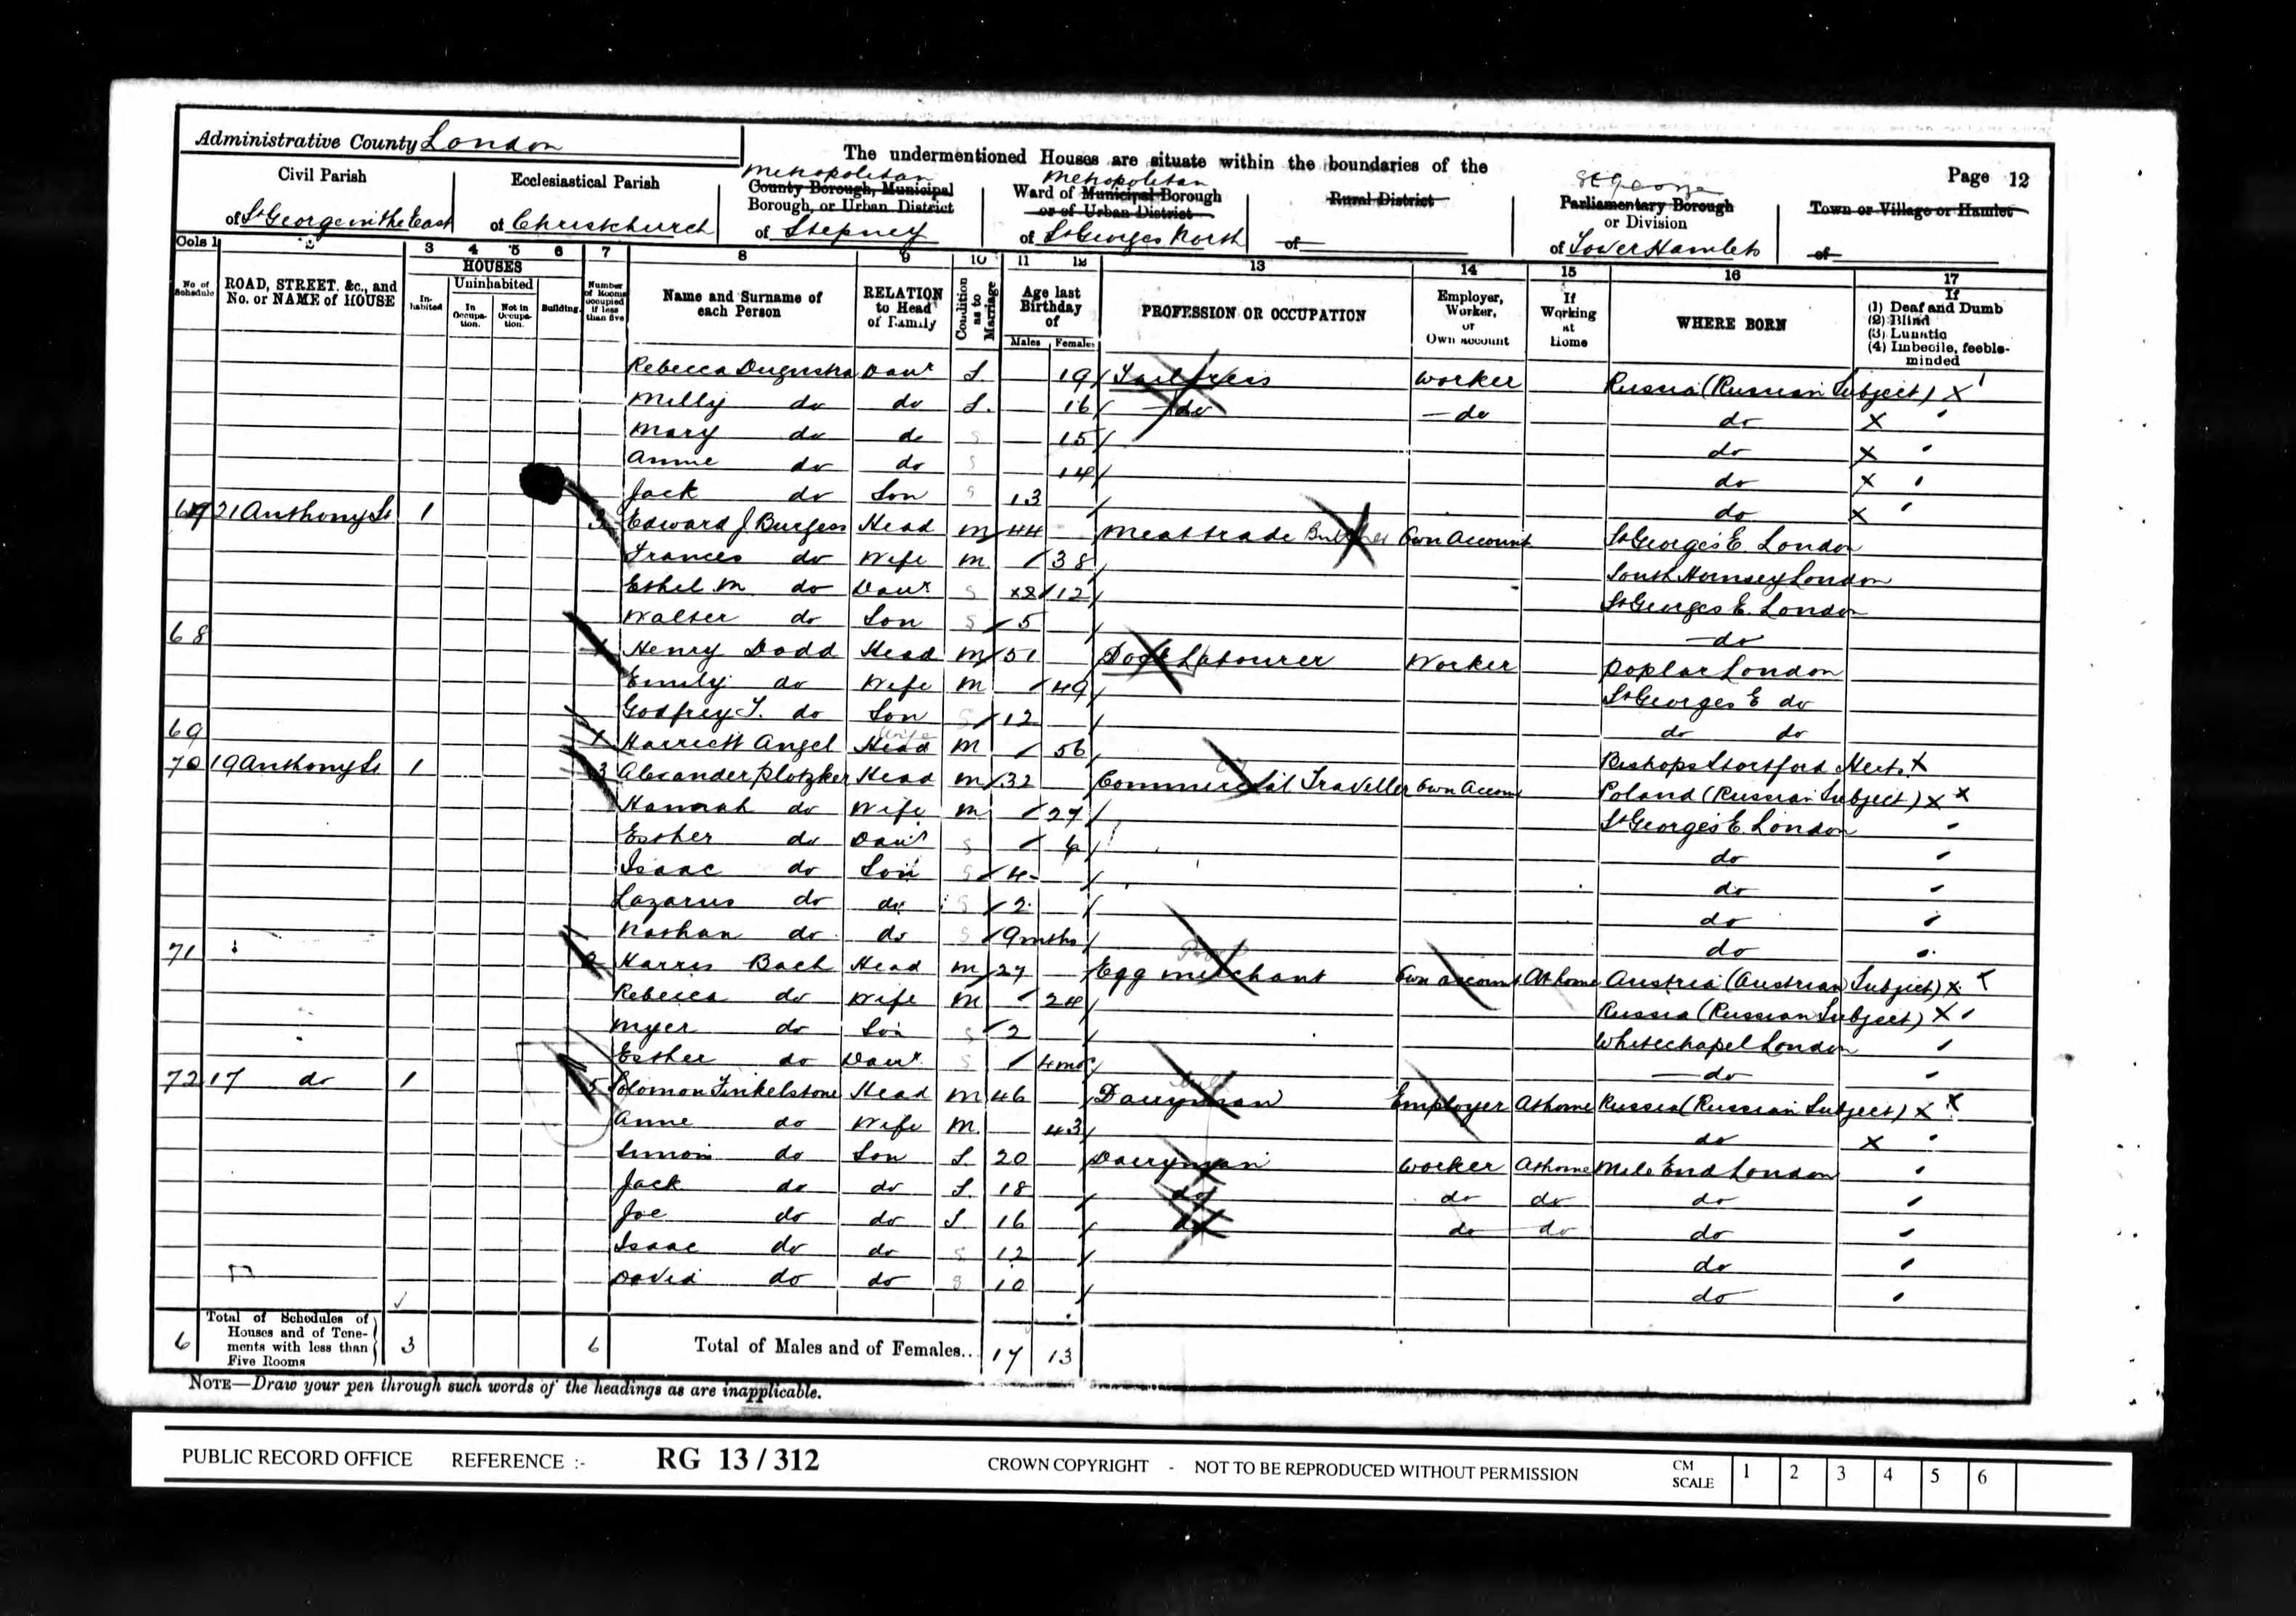 Administrative County London
The undermentioned Houses are situate within the boundaries of the
Page 12
Civil Parish
of St George in the East
Ecclesiastical Parish
of Christchurch
Metropolitan
County Borough, Municipal
Borough, or Urban District
of Stepney
Metropolitan
Ward of Municipal Borough
or of Urban District
of St Georges North
Rural District
of
St George
Parliamentary Borough
or Division
of Tower Hamlets
Town or Village or Hamlet
of
Cols 1 2 3 4 5 6 7 8 9 10 11 12 13 14 15 16 17
No. of Schedule
ROAD, STREET, &c., and No. or NAME of HOUSE
HOUSES
In-habited
Uninhabited
In Occupa-tion.
Not in Occupa-tion.
Building.
Number of Rooms occupied if less than five
Name and Surname of each Person
RELATION to Head of Family
Condition as to Marriage
Age last Birthday of
Males Females
PROFESSION OR OCCUPATION
Employer, Worker, or Own account
If Working at Home
WHERE BORN
If
(1) Deaf and Dumb
(2) Blind
(3) Lunatic
(4) Imbecile, feeble-minded
Rebecca Daur S 19 Tailoress Worker Russia (Russian Subject) X
Milly do do S. 16 do do do X
Mary do do S 15 do X
Annie do do S 14 do X
Jack do Son S 13 do X
21 Anthony St 1 3 Edward J Burgess Head M 44 Meat trade Butcher Own Account St Georges E. London
Frances do Wife M 38 South Hornsey London
Ethel M. do Daur S 12 St Georges E. London
Walter do Son S 5 do
68 1 Henry Dodd Head M 51 Dock Labourer Worker Poplar London
Emily do Wife M 49 St Georges E do
Godfrey T. do Son S 12 do do
69 1 Harriett Angel Head Wife M 56 Bishops Stortford Herts X
70 19 Anthony St 1 3 Alexander Plotzker Head M 32 Commercial Traveller Own Account Poland (Russian Subject) X X
Hannah do Wife M 27 St Georges E. London
Esther do Daur S 6 do
Isaac do Son S 4 do
Lazarus do do S 2 do
Nathan do do S 9 mths do
71 2 Harris Bach Head M 27 Egg merchant Own account At home Austria (Austrian Subject) X X
Rebecca do Wife M 24 Russia (Russian Subject) X
Myer do Son S 2 Whitechapel London
Esther do Daur. S 4 mos do
72 17 do 1 5 Solomon Finkelstone Head M 46 Dairyman Employer At home Russia (Russian Subject) X X
Anne do Wife M 43 do X
Simon do Son S. 20 Dairyman Worker At home Mile End London
Jack do do S. 18 do do do do
Joe do do S 16 do do do do
Isaac do do S 12 do
David do do S 10 do
6 Total of Schedules of Houses and of Tene-ments with less than Five Rooms 3 6 Total of Males and of Females... 17 13
NOTE—Draw your pen through such words of the headings as are inapplicable.
PUBLIC RECORD OFFICE REFERENCE :- RG 13 / 312 CROWN COPYRIGHT - NOT TO BE REPRODUCED WITHOUT PERMISSION CM SCALE 1 2 3 4 5 6